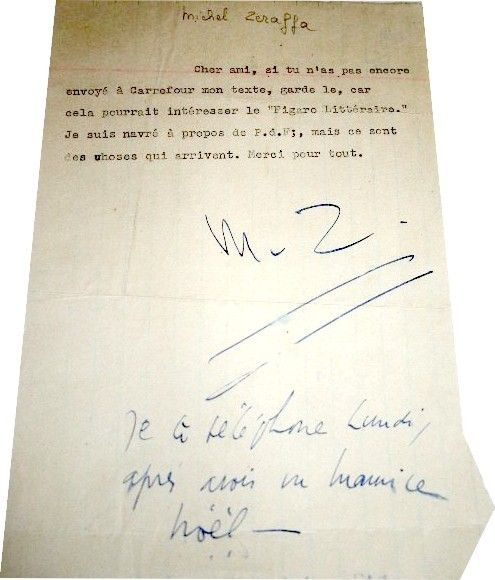 Michel Zeraffa
Cher ami, si tu n'as pas encore
envoyé à Carrefour mon texte, garde le, car
cela pourrait intéresser le "Figaro Littéraire."
Je suis navré à propos de P.d.F;, mais ce sont
des uhoses qui arrivent. Merci pour tout.
M. Z.
Je te téléphone Lundi,
après avoir vu Maurice
Noël —